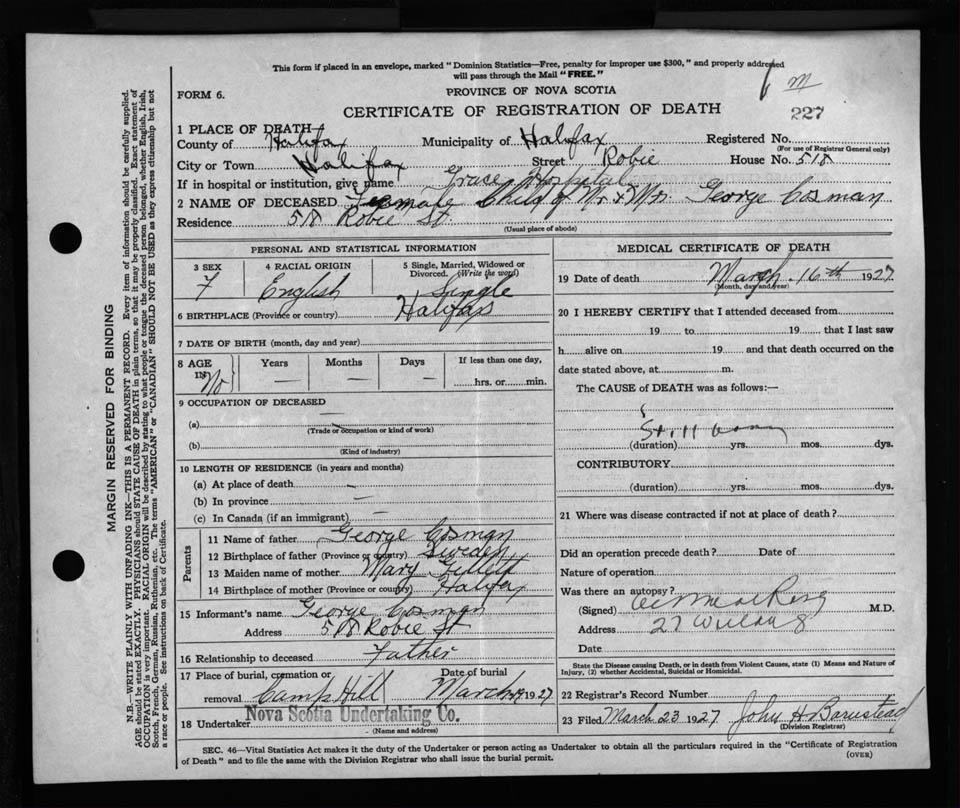 This form if placed in an envelope, marked "Dominion Statistics—Free, penalty for improper use $300," and properly addressed
will pass through the Mail "FREE."
m
FORM 6.
PROVINCE OF NOVA SCOTIA
CERTIFICATE OF REGISTRATION OF DEATH
227
1 PLACE OF DEATH
County of Halifax Municipality of Halifax Registered No.
(For use of Registrar General only)
City or Town Halifax Street Robie House No. 518
If in hospital or institution, give name Grace Hospital
2 NAME OF DECEASED Female Child of Mr. & Mrs. George Cosman
Residence 518 Robie St.
(Usual place of abode)
PERSONAL AND STATISTICAL INFORMATION
3 SEX 4 RACIAL ORIGIN 5 Single, Married, Widowed or Divorced. (Write the word)
F English Single
6 BIRTHPLACE (Province or country) Halifax
7 DATE OF BIRTH (month, day and year)
8 AGE IN Years Months Days If less than one day,
No — — — hrs. or min.
9 OCCUPATION OF DECEASED —
(a)
(Trade or occupation or kind of work)
(b)
(Kind of industry)
10 LENGTH OF RESIDENCE (in years and months)
(a) At place of death —
(b) In province —
(c) In Canada (if an immigrant) —
Parents
11 Name of father George Cosman
12 Birthplace of father (Province or country) Sweden
13 Maiden name of mother Mary Gillett
14 Birthplace of mother (Province or country) Halifax
15 Informant's name George Cosman
Address 518 Robie St
16 Relationship to deceased Father
17 Place of burial, cremation or removal Camp Hill Date of burial March 1927
18 Undertaker Nova Scotia Undertaking Co.
(Name and address)
MEDICAL CERTIFICATE OF DEATH
19 Date of death March 16th 1927
(Month, day and year)
20 I HEREBY CERTIFY that I attended deceased from
19 to 19 that I last saw
h alive on 19 and that death occurred on the
date stated above, at m.
The CAUSE of DEATH was as follows:—
Still born
(duration) yrs. mos. dys.
CONTRIBUTORY
(duration) yrs. mos. dys.
21 Where was disease contracted if not at place of death?
Did an operation precede death? Date of
Nature of operation
Was there an autopsy?
(Signed) M.D.
Address 27
Date
State the Disease causing Death, or in death from Violent Causes, state (1) Means and Nature of
Injury, (2) whether Accidental, Suicidal or Homicidal.
22 Registrar's Record Number
23 Filed March 23 1927 John H Barnstead
(Division Registrar)
SEC. 46—Vital Statistics Act makes it the duty of the Undertaker or person acting as Undertaker to obtain all the particulars required in the "Certificate of Registration
of Death" and to file the same with the Division Registrar who shall issue the burial permit.
(OVER)
MARGIN RESERVED FOR BINDING
N.B.—WRITE PLAINLY WITH UNFADING INK—THIS IS A PERMANENT RECORD. Every item of information should be carefully supplied.
AGE should be stated EXACTLY. PHYSICIANS should STATE CAUSE OF DEATH in plain terms, so that it may be properly classified. Exact statement of
OCCUPATION is very important. RACIAL ORIGIN will be described by stating to what people or tongue the deceased person belonged, whether English, Irish,
Scotch, French, German, Russian, Ruthenian, etc. The terms "AMERICAN" or "CANADIAN" SHOULD NOT BE USED as they express citizenship but not
a race or people. See instructions on back of Certificate.